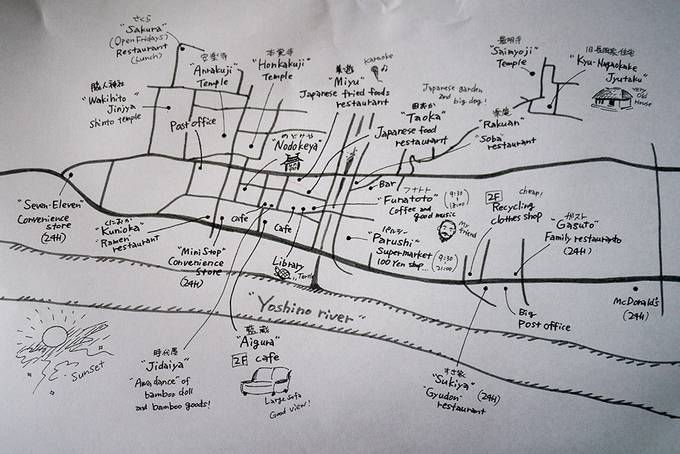 さくら
"Sakura"
(Open Fridays)
Restaurant
(Lunch)
"Anrakuji"
Temple
本覚寺
"Honkakuji"
Temple
karaoke
"Miyu"
Japanese fried foods
restaurant
Japanese garden
and big dog!
田おか
"Taoka"
Japanese food
restaurant
"Rakuan"
"Soba"
restaurant
"Saimyoji"
Temple
"Kyu-Nagaokake
Jyutaku"
very
Old
House
脇人神社
"Wakihito
Jinjya
Shinto temple
Post office
のどけや
"Nodokeya"
Bar
フナトト
"Funatoto"
Coffee and
good music
(9:30
18:00)
My
friend
2F
cheap!
Recycling
clothes shop
ガスト
"Gasuto"
Family restaurant
(24H)
"Seven-Eleven"
Convenience
store
(24H)
"Kunioka"
"Ramen"
restaurant
cafe
cafe
"Mini Stop"
Convenience
Store
(24H)
Library
Turtle
パルシー
"Parushi"
Supermarket
100 Yen shop...
(9:30
21:00)
"Yoshino river"
Big
Post office
McDonald's
(24H)
Sunset
時代屋
"Jidaiya"
"Awa dance" of
bamboo doll
and bamboo goods!
藍蔵
"Aigura"
2F cafe
Large sofa
Good view!
すき家
"Sukiya" (24H)
"Gyudon"
restaurant